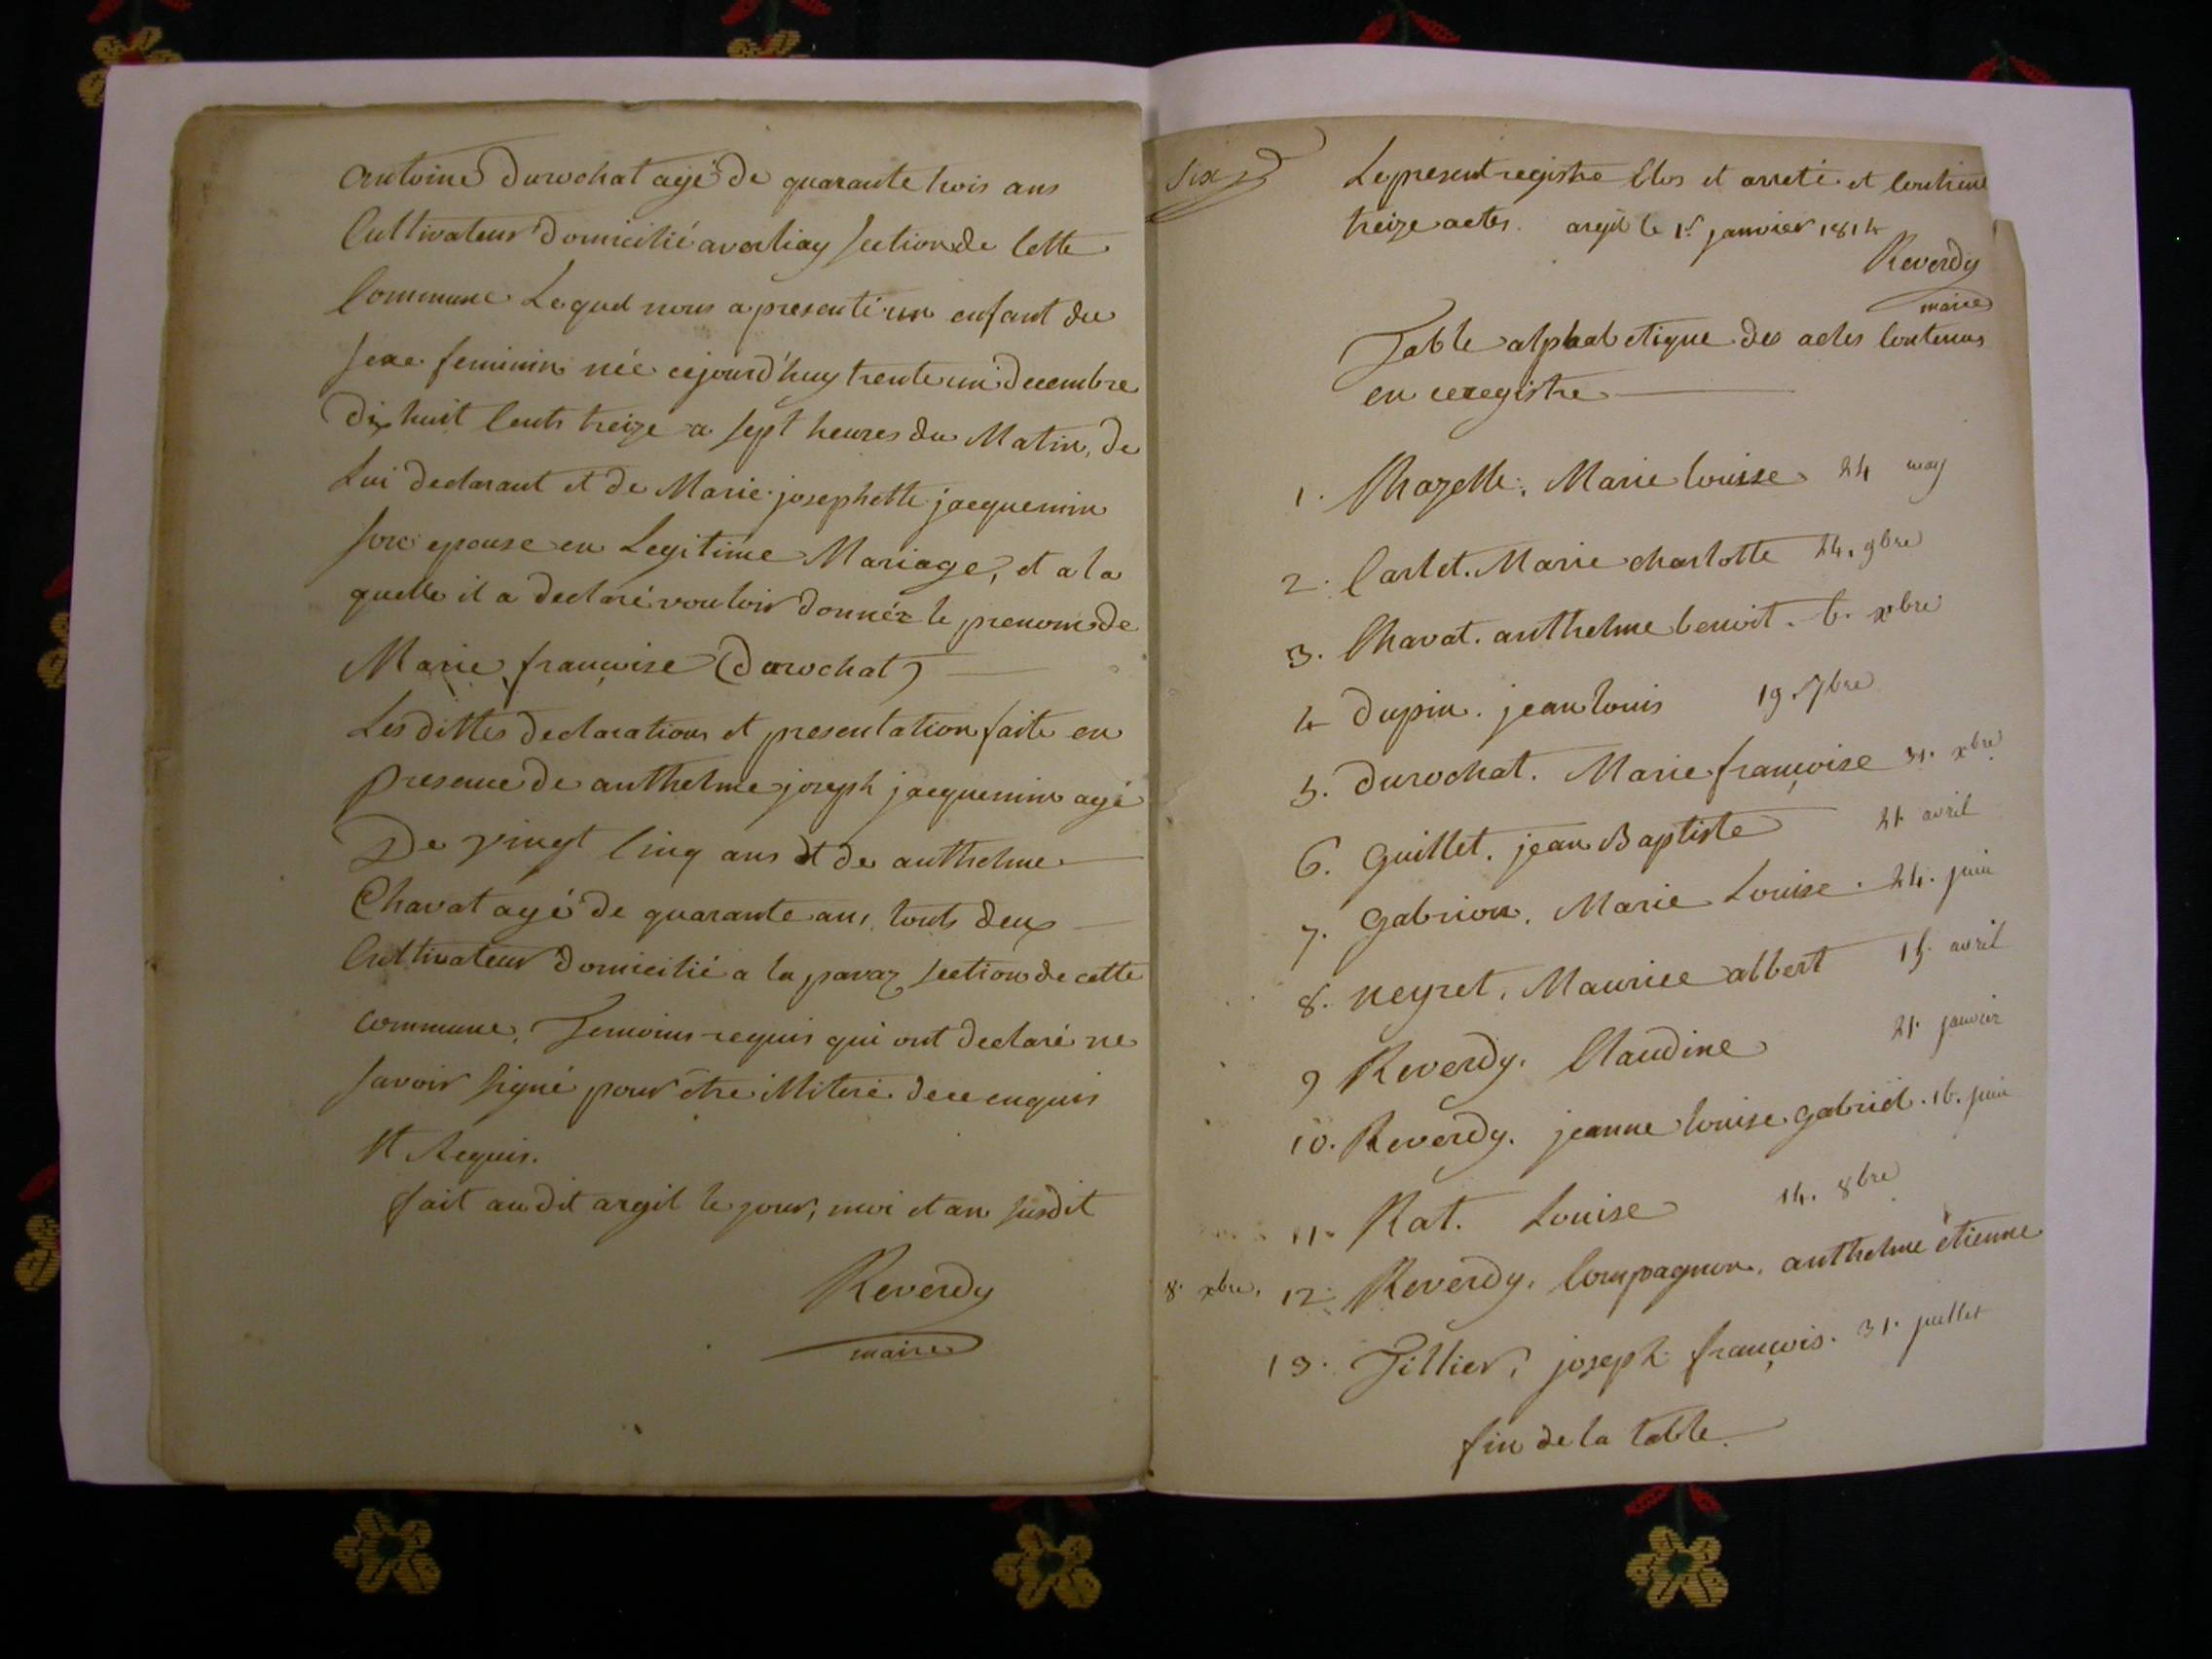 antoine durochat agé de quarante trois ans
Cultivateur domicilié a section de Cette
Commune Lequel nous a presenté un enfant du
sexe feminin née cejourd'huy trente un decembre
dix huit Cents treize a sept heures du Matin, de
Lui declarant et de Marie josephette jacquemin
son epouse en Legitime Mariage, et a la
quelle il a declaré vouloir donnér le prenom de
Marie françoise (durochat)
Les dittes declarations et presentation faite en
presence de anthelme joseph jacquemin agé
De vingt Cinq ans et de anthelme
Chavat agé de quarante ans, touts deux
Cultivateur domicilié a la pavaz section de cette
commune, Temoins requis qui ont declaré ne
savoir signé pour être illiteré de ce enquis
Et Requis.
fait au dit argil le jour, moi et an susdit
Reverdy
maire
six
Le present registre Clos et arreté et Contient
treize actes. argil le 1er janvier 1814
Reverdy
maire
Table alphabetique des actes Contenus
en ceregistre
1. Chazelle, Marie louise 24 may
2. Carlet. Marie charlotte 24. 9bre
3. Chavat. anthelme benoit. 6. xbre
4 dupin. jean louis 19. 7bre
5. durochat. Marie françoise 31. xbre
6. Guillet. jean Baptiste 21. avril
7. Gabrion. Marie Louise. 24. juin
8. neyret. Maurice albert 15. avril
9 Reverdy. Claudine 21. janvier
10. Reverdy. jeanne louise gabriel. 16. juin
11. Rat. Louise 14. 8bre
8. xbre. 12. Reverdy. Compagnon. anthelme etienne
13. Tillier, joseph françois. 31. juillet
fin de la table.